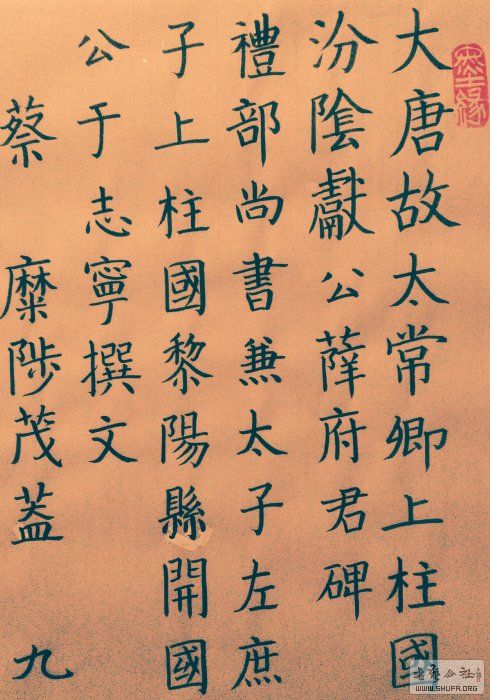 大唐故太常卿上柱國
汾陰獻公薛府君碑
禮部尚書兼太子左庶
子上柱國黎陽縣開國
公于志寧撰文
蔡 糜陟茂蓋 九
WWW.SHUFA.ORG